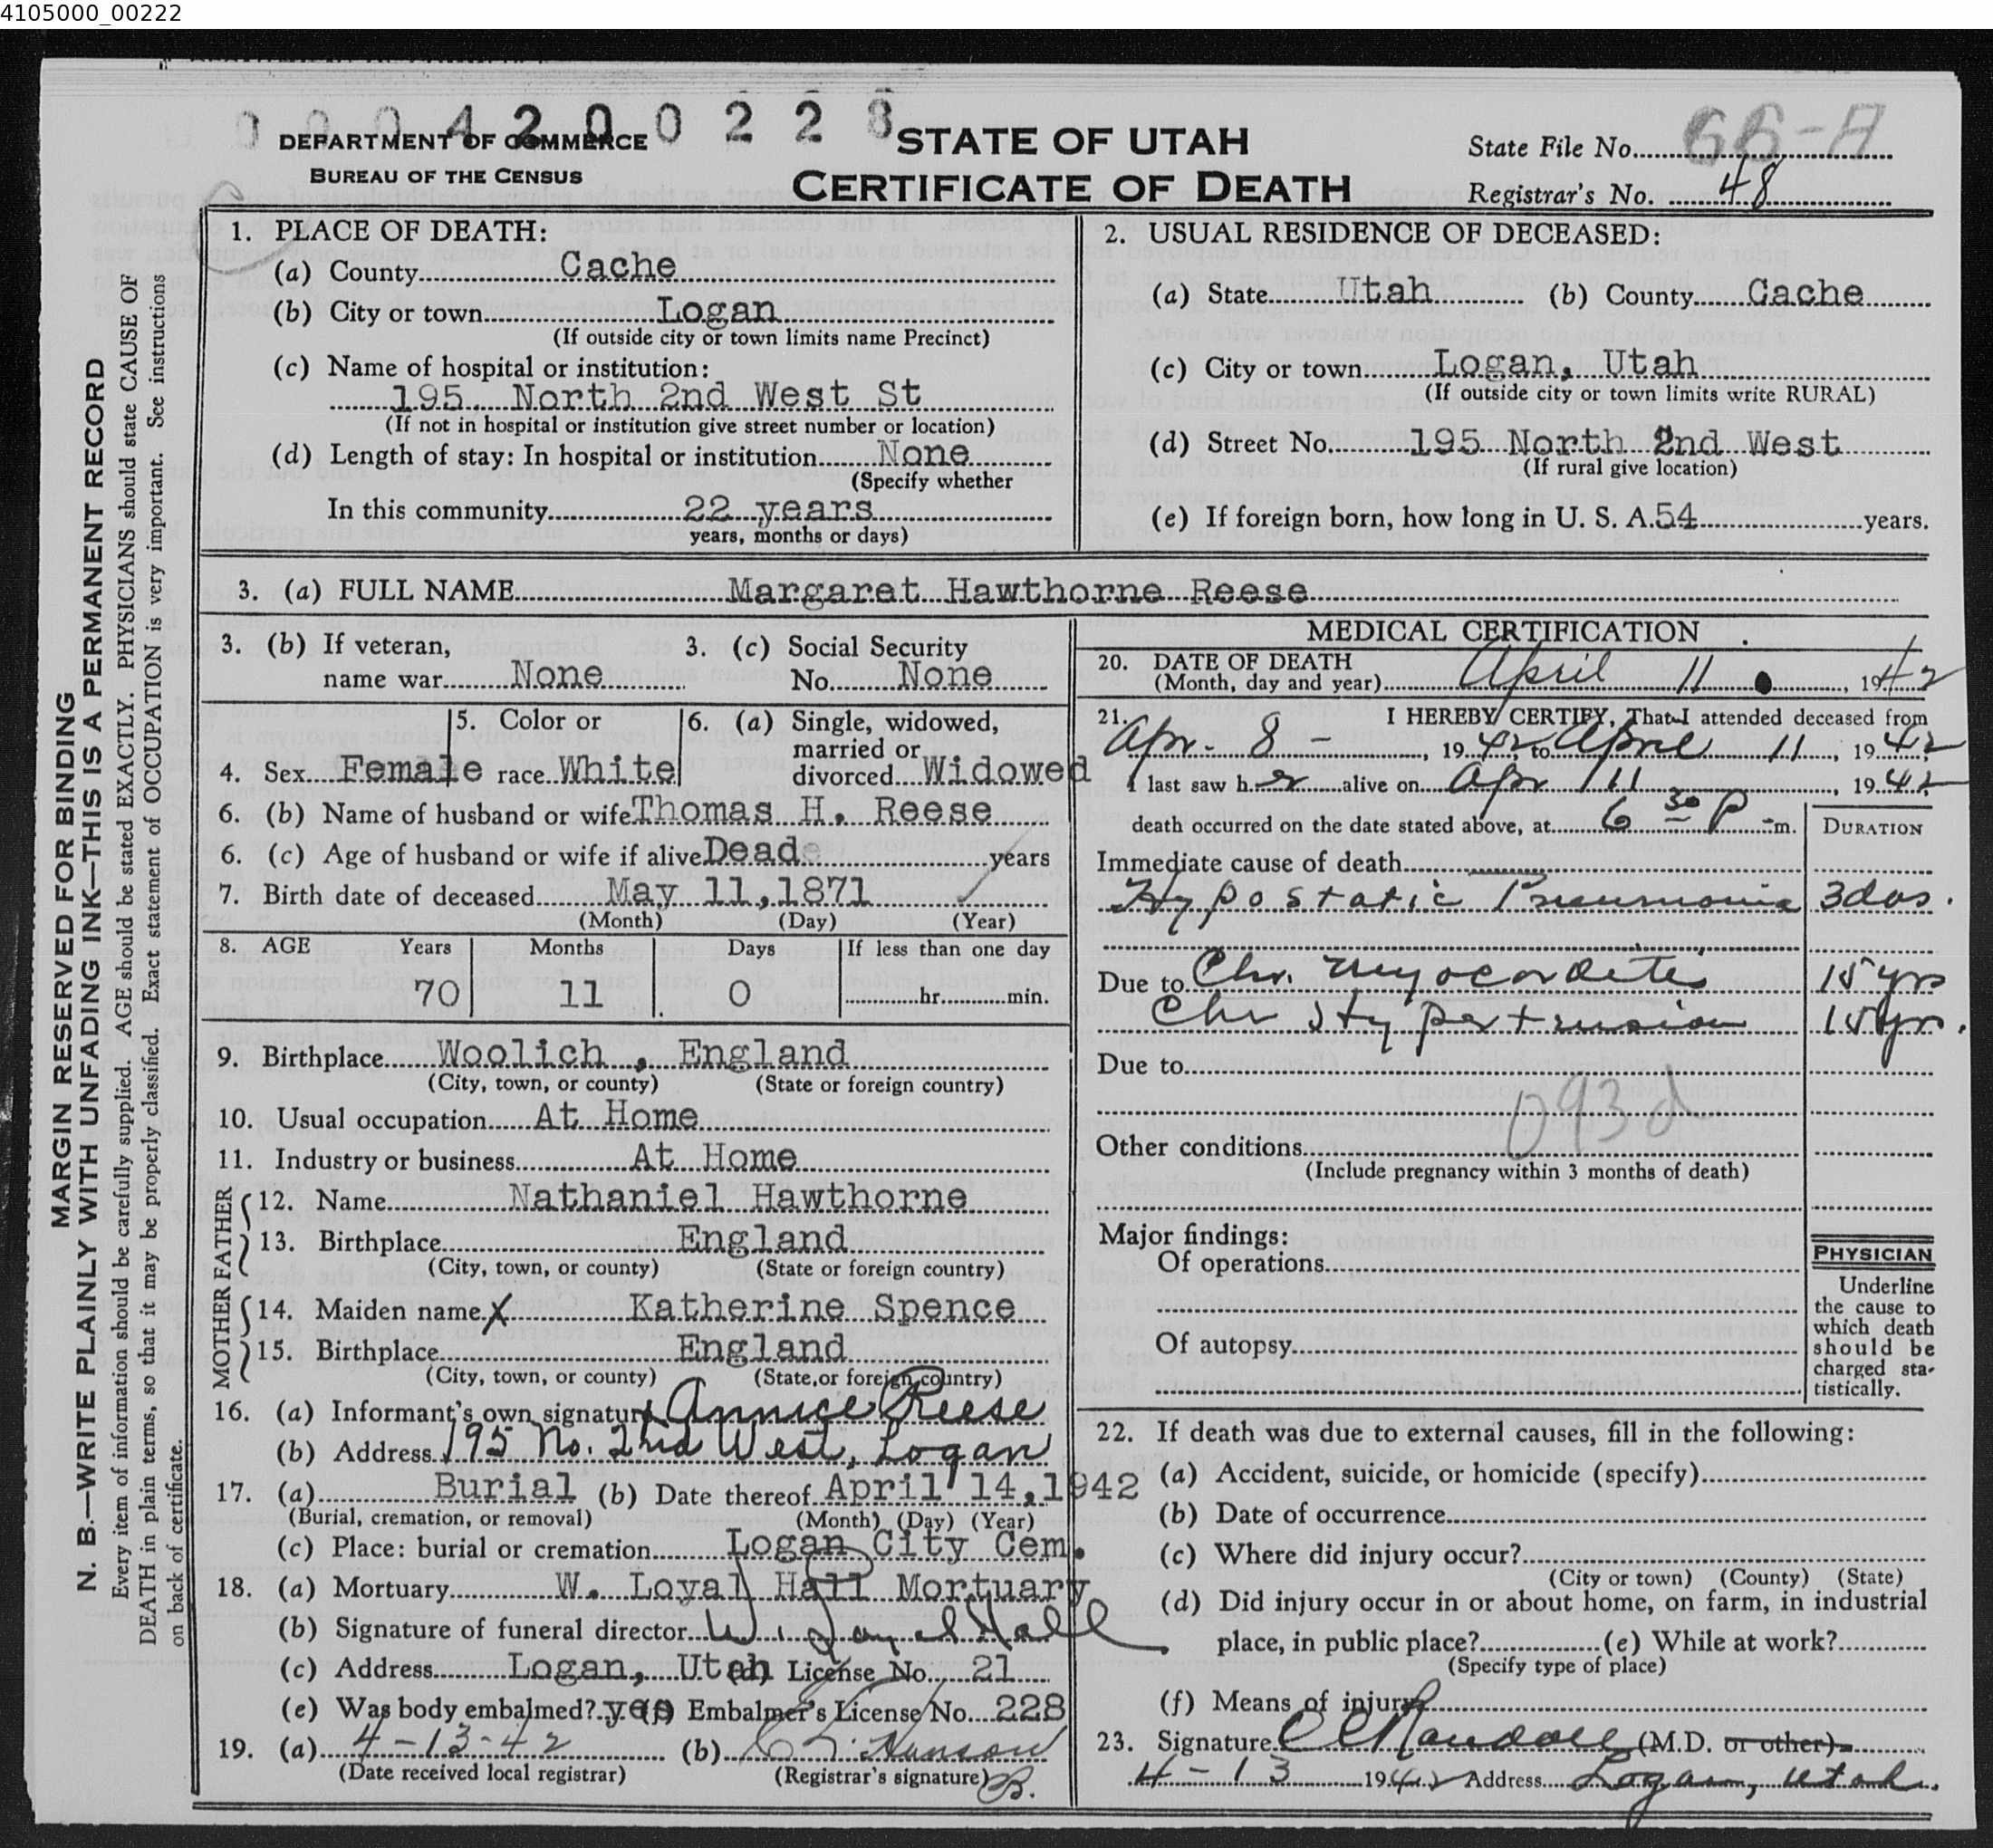 4105000_00222
0 0 0 4 2 0 0 2 2 8
DEPARTMENT OF COMMERCE
BUREAU OF THE CENSUS
STATE OF UTAH
CERTIFICATE OF DEATH
State File No. 66-A
Registrar's No. 48
MARGIN RESERVED FOR BINDING
N. B.—WRITE PLAINLY WITH UNFADING INK—THIS IS A PERMANENT RECORD
Every item of information should be carefully supplied. AGE should be stated EXACTLY. PHYSICIANS should state CAUSE OF
DEATH in plain terms, so that it may be properly classified. Exact statement of OCCUPATION is very important. See instructions
on back of certificate.
1. PLACE OF DEATH:
(a) County Cache
(b) City or town Logan
(If outside city or town limits name Precinct)
(c) Name of hospital or institution:
195 North 2nd West St
(If not in hospital or institution give street number or location)
(d) Length of stay: In hospital or institution None
(Specify whether
In this community 22 years
years, months or days)
2. USUAL RESIDENCE OF DECEASED:
(a) State Utah (b) County Cache
(c) City or town Logan, Utah
(If outside city or town limits write RURAL)
(d) Street No. 195 North 2nd West
(If rural give location)
(e) If foreign born, how long in U. S. A. 54 years.
3. (a) FULL NAME Margaret Hawthorne Reese
3. (b) If veteran,
name war None
3. (c) Social Security
No. None
4. Sex Female
5. Color or
race White
6. (a) Single, widowed,
married or
divorced Widowed
6. (b) Name of husband or wife Thomas H. Reese
6. (c) Age of husband or wife if alive Dead years
7. Birth date of deceased May 11, 1871
(Month) (Day) (Year)
8. AGE Years Months Days If less than one day
70 11 0 hr. min.
9. Birthplace Woolich , England
(City, town, or county) (State or foreign country)
10. Usual occupation At Home
11. Industry or business At Home
FATHER
12. Name Nathaniel Hawthorne
13. Birthplace England
(City, town, or county) (State or foreign country)
MOTHER
14. Maiden name X Katherine Spence
15. Birthplace England
(City, town, or county) (State, or foreign country)
16. (a) Informant's own signature Annice Reese
(b) Address 195 No. 2nd West, Logan
17. (a) Burial (b) Date thereof April 14, 1942
(Burial, cremation, or removal) (Month) (Day) (Year)
(c) Place: burial or cremation Logan City Cem.
18. (a) Mortuary W. Loyal Hall Mortuary
(b) Signature of funeral director W. Loyal Hall
(c) Address Logan, Utah (d) License No. 21
(e) Was body embalmed? yes (f) Embalmer's License No. 228
19. (a) 4-13-42 (b) Hanson
(Date received local registrar) (Registrar's signature) B.
MEDICAL CERTIFICATION
20. DATE OF DEATH
(Month, day and year) April 11, 1942
21. I HEREBY CERTIFY, That I attended deceased from
Apr. 8 -, 1942 to April 11, 1942
I last saw her alive on Apr 11, 1942
death occurred on the date stated above, at 6 30 P m.
DURATION
Immediate cause of death
Hypostatic Pneumonia 3 das.
Due to Chr. Myocarditis 15 yrs
Chr Hypertension 15 yrs.
Due to
093d
Other conditions
(Include pregnancy within 3 months of death)
Major findings:
Of operations
Of autopsy
PHYSICIAN
Underline
the cause to
which death
should be
charged sta-
tistically.
22. If death was due to external causes, fill in the following:
(a) Accident, suicide, or homicide (specify)
(b) Date of occurrence
(c) Where did injury occur?
(City or town) (County) (State)
(d) Did injury occur in or about home, on farm, in industrial
place, in public place? (e) While at work?
(Specify type of place)
(f) Means of injury
23. Signature C C Randall (M.D. or other)
4-13 1942 Address Logan, Utah.